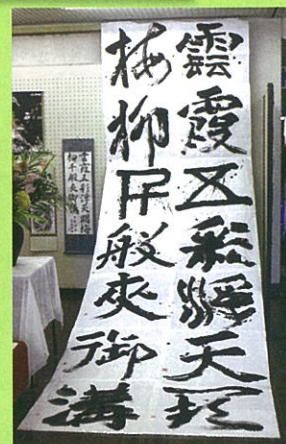 雲霞五彩浮天闕
梅柳千般夾御溝